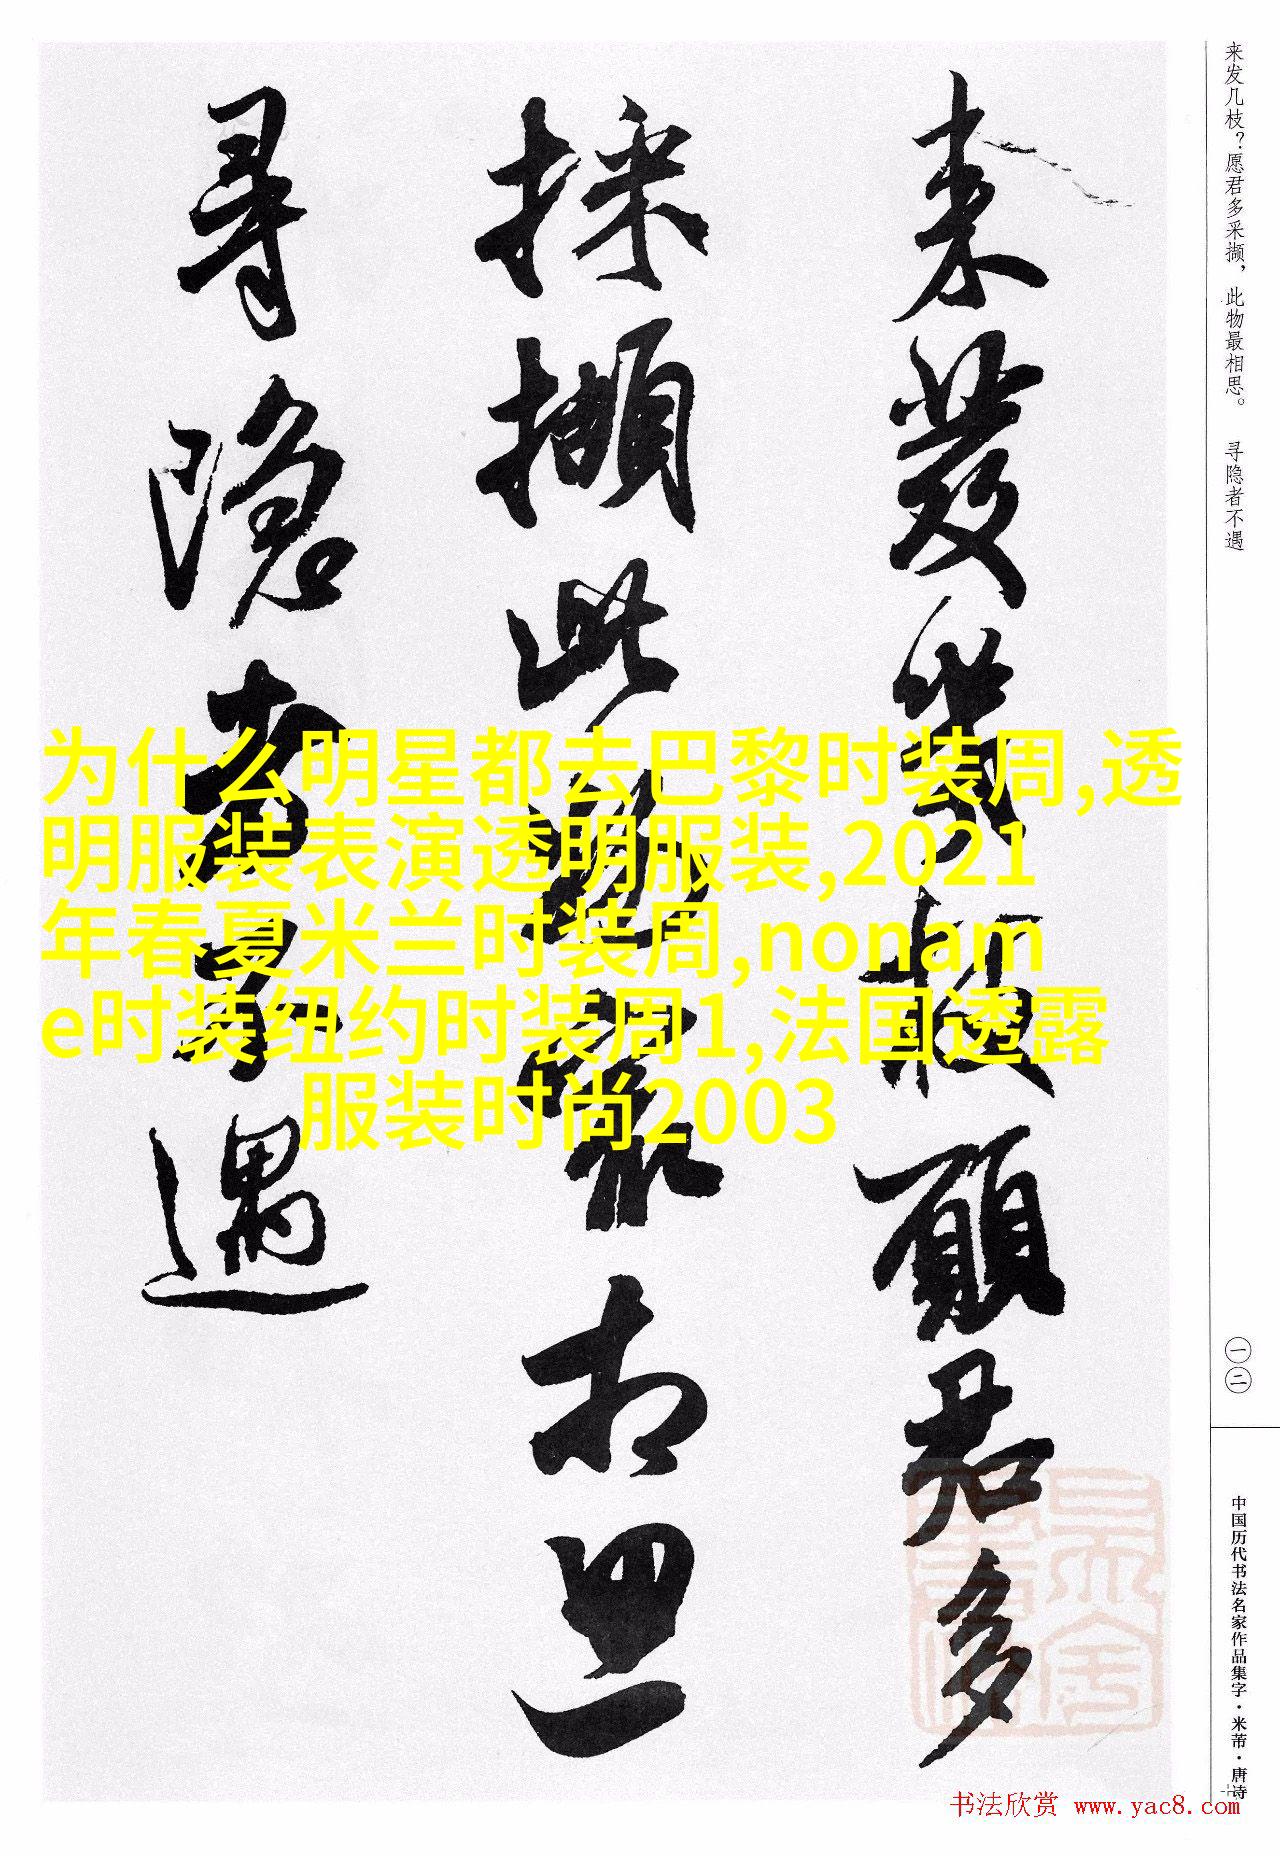 来发几枝？愿君多采撷，此物最相思。 寻隐者不遇
来發幾枝願君多
採擷此物最相思
尋隱者不遇
为什么明星都去巴黎时装周,透
明服装表演透明服装,2021
年春夏米兰时装周,nonam
e时装纽约时装周1,法国透露
服装时尚2003
一二
中国历代书法名家作品集字·米芾·唐诗
书法欣赏 www.yac8.com